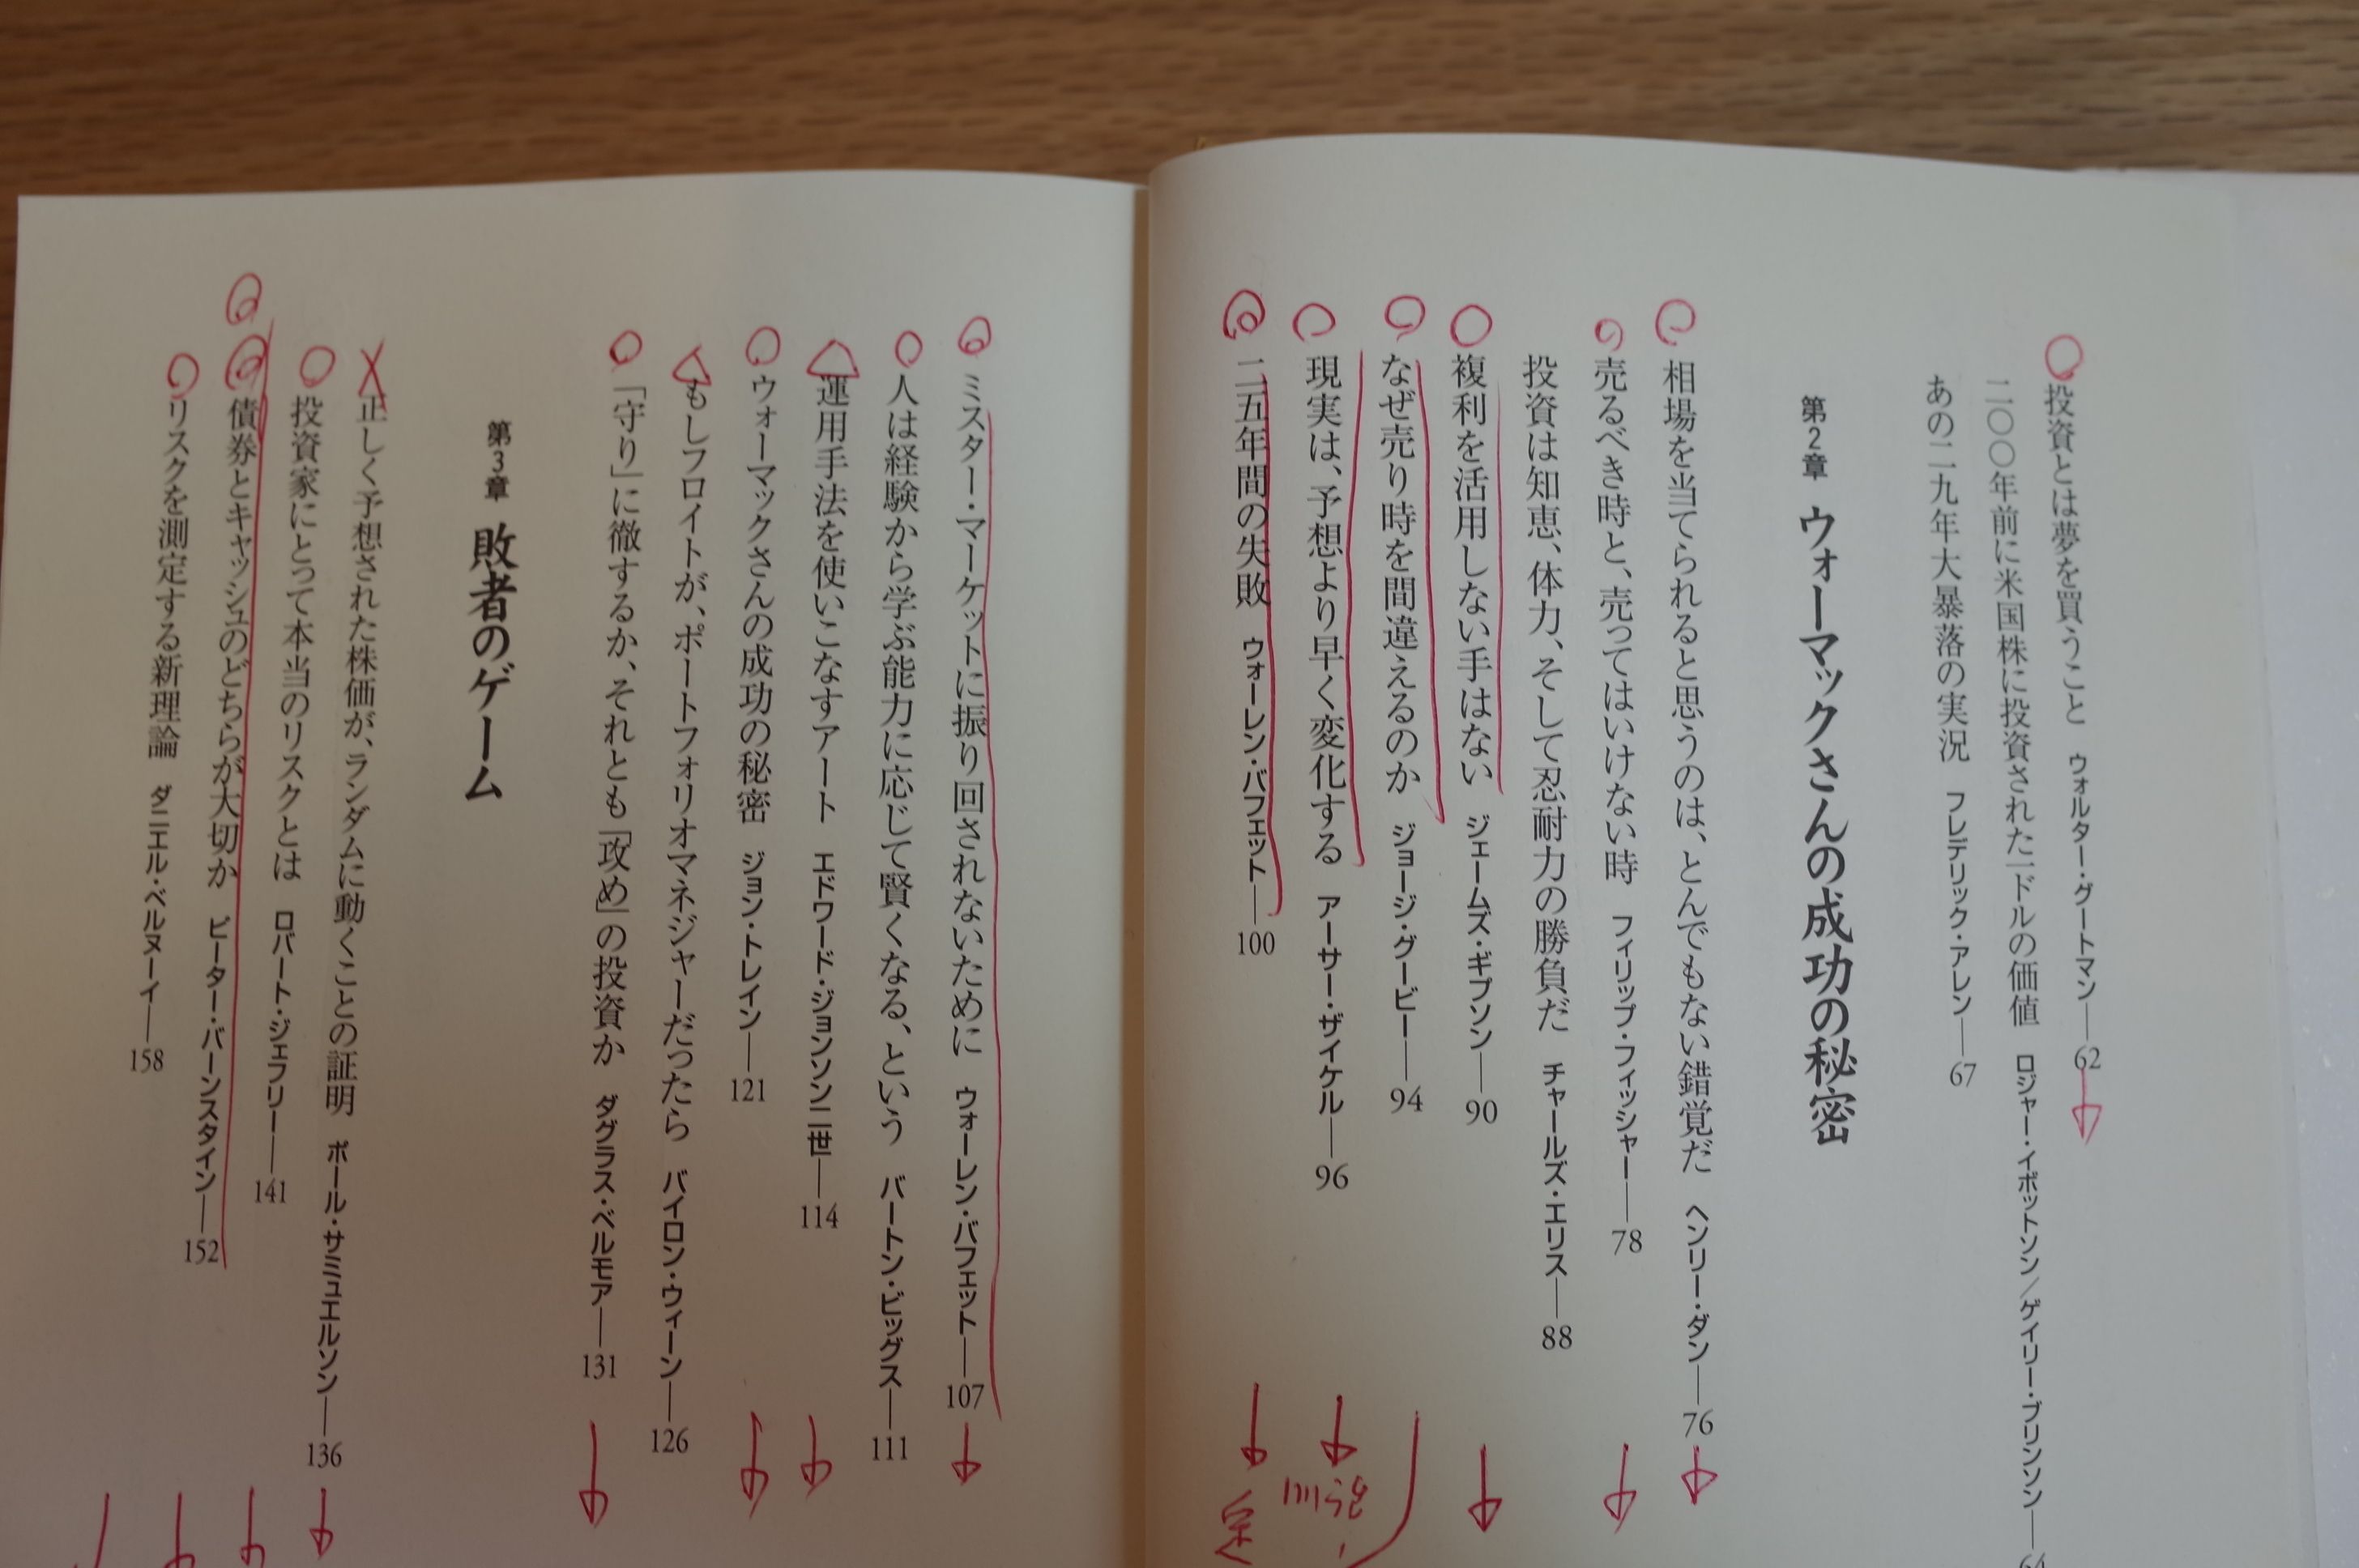 投資とは夢を買うこと ウォルター・グートマン―62
二〇〇年前に米国株に投資された一ドルの価値 ロジャー・イボットソン／ゲイリー・ブリンソン―64
あの二九年大暴落の実況 フレデリック・アレン―67
第2章 ウォーマックさんの成功の秘密
相場を当てられると思うのは、とんでもない錯覚だ ヘンリー・ダン―76
売るべき時と、売ってはいけない時 フィリップ・フィッシャー―78
投資は知恵、体力、そして忍耐力の勝負だ チャールズ・エリス―88
複利を活用しない手はない ジェームズ・ギブソン―90
なぜ売り時を間違えるのか ジョージ・グービー―94
現実は、予想より早く変化する アーサー・ザイケル―96
二五年間の失敗 ウォーレン・バフェット―100
ミスター・マーケットに振り回されないために ウォーレン・バフェット―107
人は経験から学ぶ能力に応じて賢くなる、という バートン・ビッグス―111
運用手法を使いこなすアート エドワード・ジョンソン二世―114
ウォーマックさんの成功の秘密 ジョン・トレイン―121
もしフロイトが、ポートフォリオマネジャーだったら バイロン・ウィーン―126
「守り」に徹するか、それとも「攻め」の投資か ダグラス・ベルモア―131
第3章 敗者のゲーム
正しく予想された株価が、ランダムに動くことの証明 ポール・サミュエルソン―136
投資家にとって本当のリスクとは ロバート・ジェフリー―141
債券とキャッシュのどちらが大切か ピーター・バーンスタイン―152
リスクを測定する新理論 ダニエル・ベルヌーイ―158